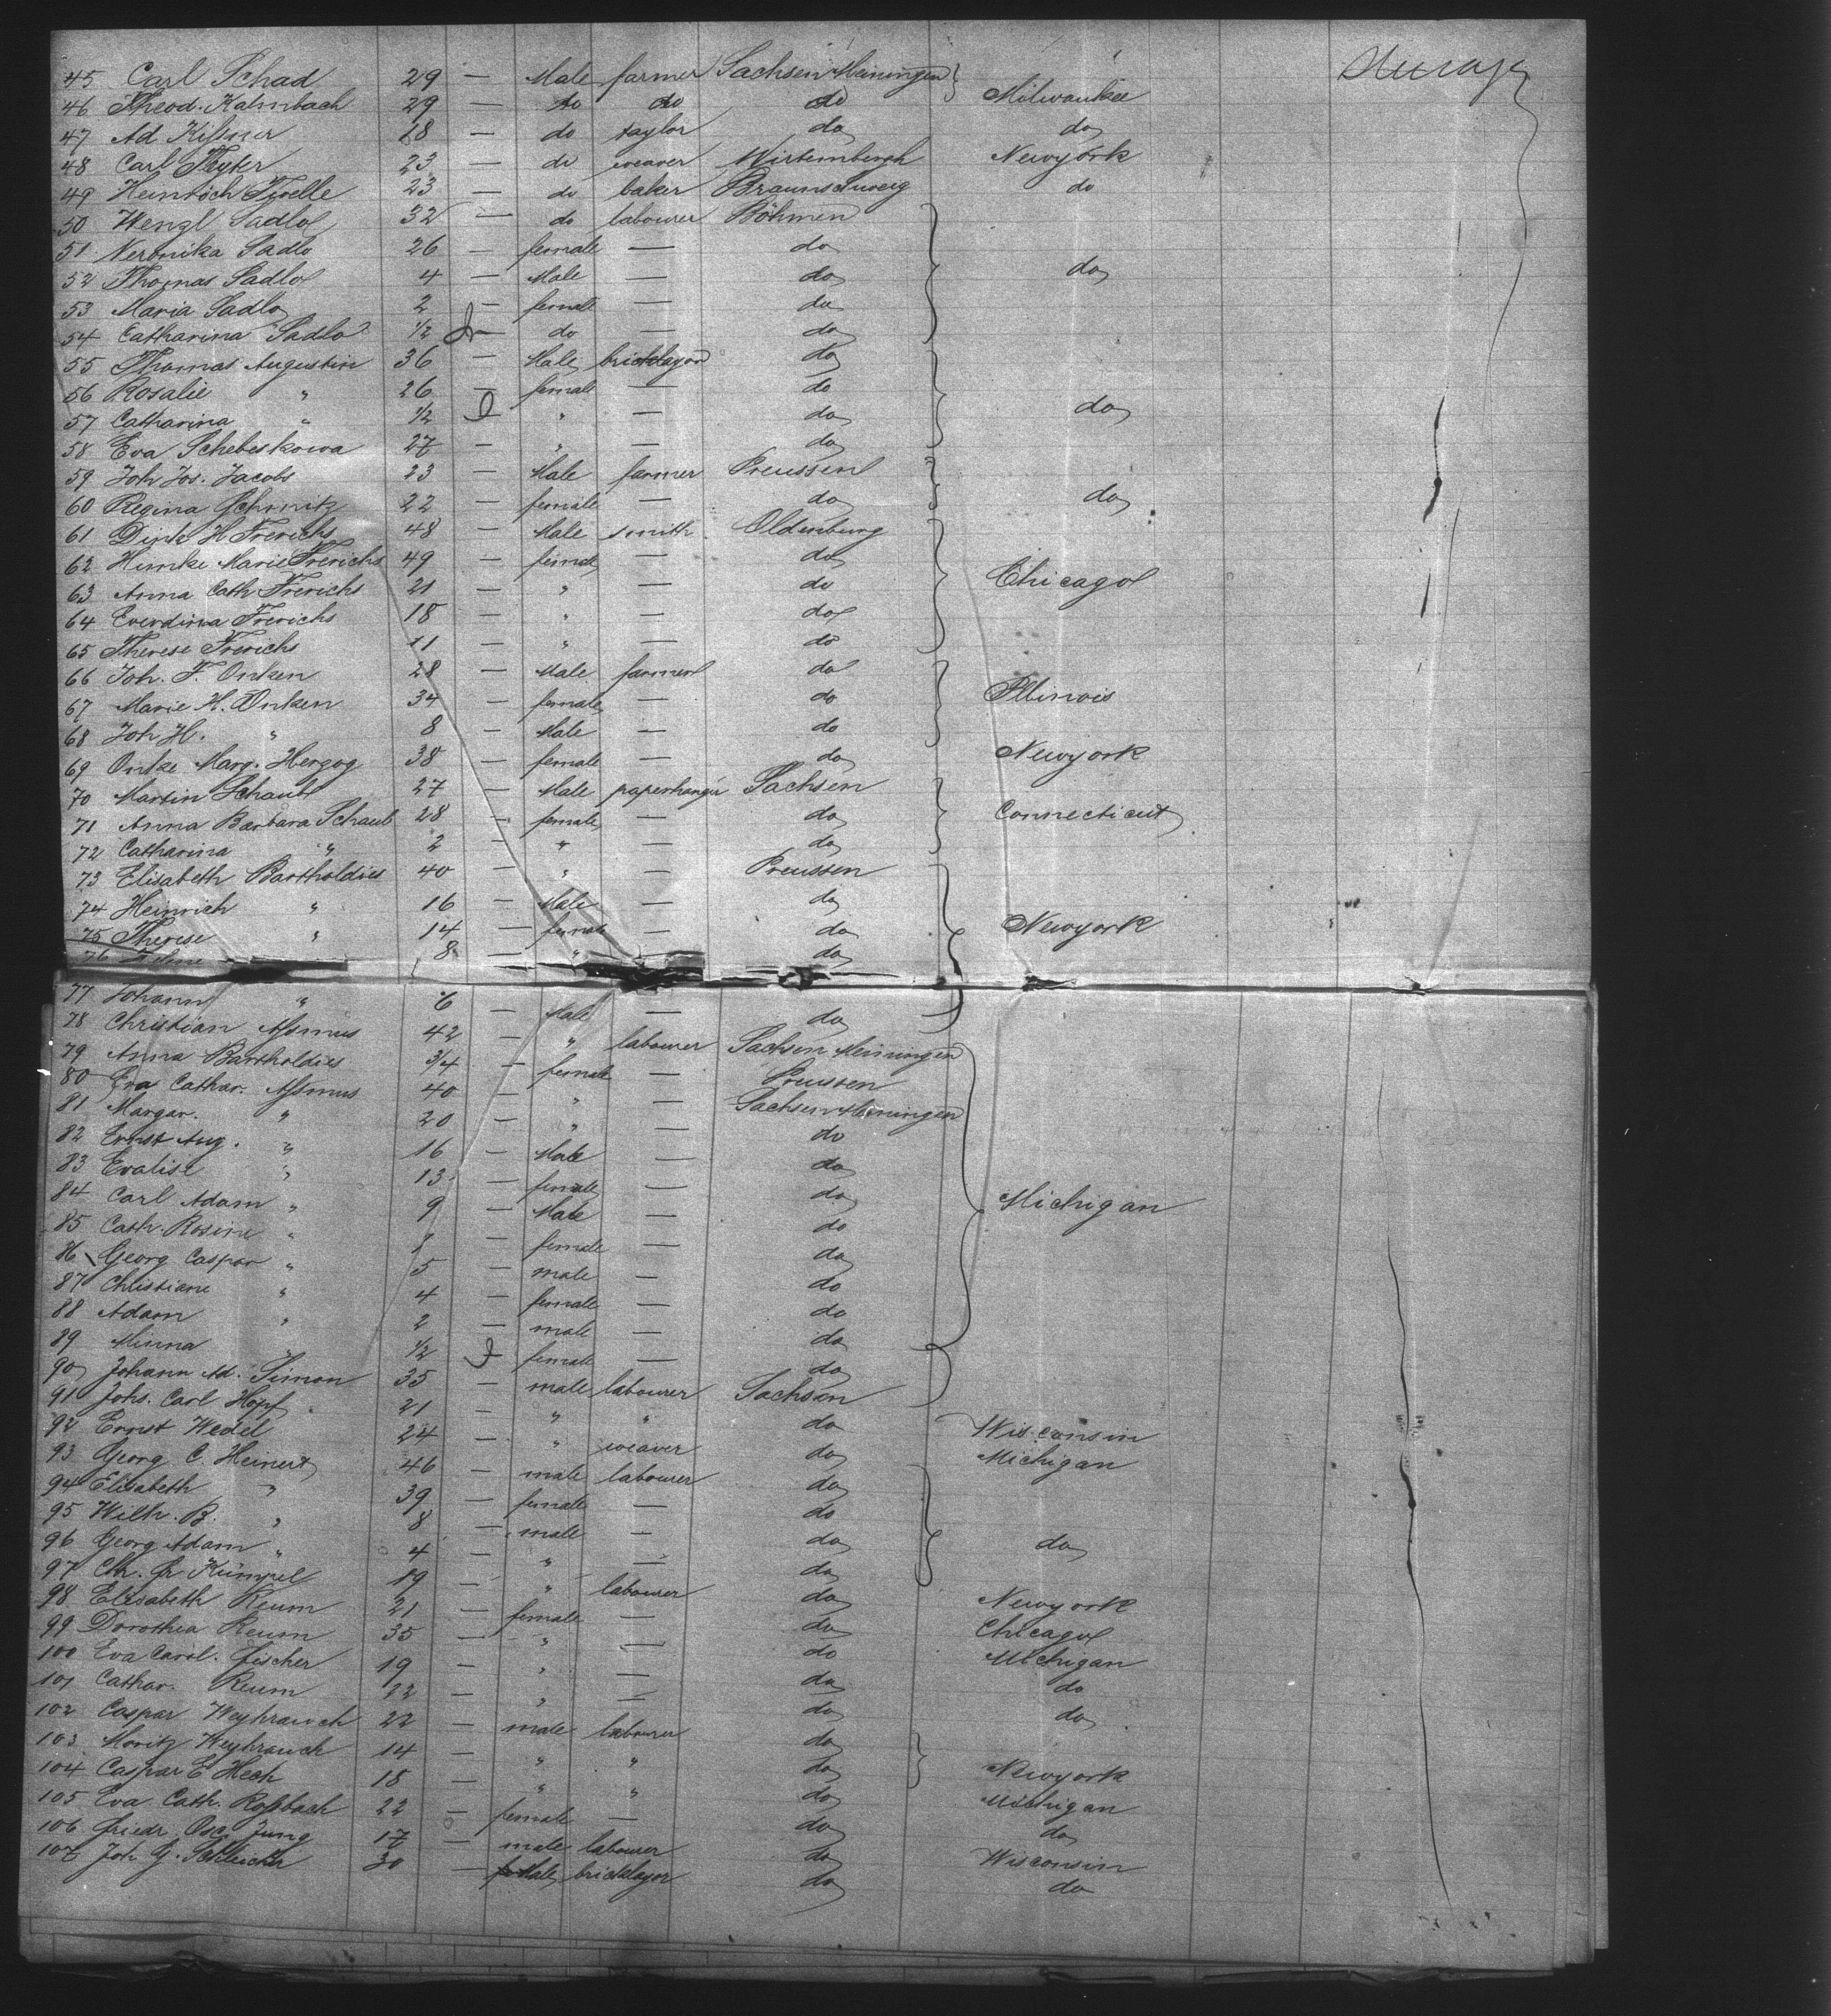 Steerage
45 Carl Schad 29 — Male farmer Sachsen Meiningen
46 Theod. Kalmbach 29 — do do do Milwaukee
47 Ad Kißner 28 — do taylor do do
48 Carl 23 — do weaver Wirtembergh Newyork
49 Heinrich 23 — do baker Braunschweig do
50 Wenzl Sadlo 32 — do labourer Böhmen
51 Veronika Sadlo 26 — female — do
52 Thomas Sadlo 4 — Male do do
53 Maria Sadlo 2 — female — do
54 Catharina Sadlo 1/2 — do — do
55 Thomas Augustin 36 — Male bricklayor do
56 Rosalie " 26 — female — do
57 Catharina " 1/2 " — do do
58 Eva Schebeskowa 27 — " — do
59 Joh Jos. Jacobs 23 — Male farmer Preussen
60 Regina Schmitz 22 — female — do do
61 Dirk H Frerichs 48 — Male smith Oldenburg
62 Himke Marie Frerichs 49 — female — do
63 Anna Cath Frerichs 21 — " — do Chicago
64 Everdina Frerichs 18 — " — do
65 Therese Frerichs 11 — " — do
66 Joh. F. Onken 28 — Male farmer do
67 Marie H. Onken 34 — female — do Illinois
68 Joh H. " 8 — Male — do
69 Onke Marg. Herzog 38 — female — do Newyork
70 Martin Schaub 27 — Male paperhanger Sachsen
71 Anna Barbara Schaub 28 — female — do Connecticut
72 Catharina " 2 — " — do
73 Elisabeth Bartholdies 40 — " — Preussen
74 Heinrich " 16 — Male — do
75 Therese " 14 — female — do Newyork
76 8 — " do
77 Johann " 6 — Male — do
78 Christian Aßmus 42 — " labourer Sachsen Meiningen
79 Anna Bartholdies 3/4 — female — Preussen
80 Eva Cathar. Aßmus 40 — " — Sachsen Meiningen
81 Margar. " 20 — " — do
82 Ernst Aug. " 16 — Male — do
83 Evalise " 13 — female — do
84 Carl Adam " 9 — Male — do Michigan
85 Cath. Rosine " — female — do
86 Georg Caspar " 5 — male — do
87 Christiane " 4 — female — do
88 Adam " 2 — male — do
89 Minna " 1/2 female — do
90 Johann Ad. Simon 35 — male labourer Sachsen
91 Johs. Carl Höpf 21 — " " do Wisconsin
92 Ernst Wedel 24 — " weaver do Michigan
93 Georg C. Heinert 46 — male labourer do
94 Elisabeth " 39 — female — do
95 Wilh. B. " 8 — male — do
96 Georg Adam " 4 — " — do do
97 Chr. Fr Kümpel 19 — " labourer do Newyork
98 Elisabeth Reum 21 — female — do Chicago
99 Dorothea Reum 35 — " — do Michigan
100 Eva Carol. Fischer 19 — " — do do
101 Cathar. Reum 22 — " — do do
102 Caspar Weyhrauch 22 — male labourer do
103 Moritz Weyhrauch 14 — " " do Newyork
104 Caspar E Hech 18 — " " do Michigan
105 Eva Cath. Roßbach 22 — female — do do
106 Friedr. Osc. Jung 17 — male labourer do Wisconsin
107 Joh G. Schleicher 30 — Male bricklayor do do